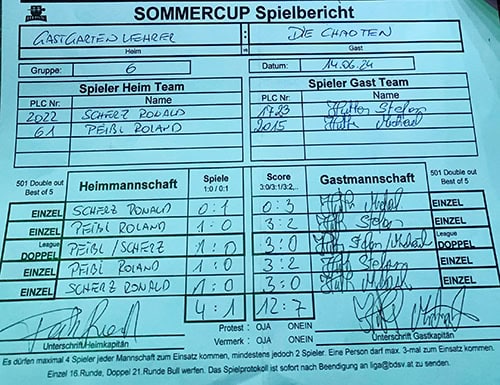 SOMMERCUP Spielbericht
GASTGARTEN LEHRER : DIE CHAOTEN
Heim Gast
Gruppe: 6 Datum: 14.06.24
Spieler Heim Team Spieler Gast Team
PLC Nr. Name PLC Nr. Name
2022 SCHERZ RONALD 1723 Stefan
61 PEIßL ROLAND 2015 Michael
501 Double out Best of 5 Heimmannschaft Spiele 1:0 / 0:1 Score 3:0/3:1/3:2,.. Gastmannschaft 501 Double out Best of 5
EINZEL SCHERZ RONALD 0:1 0:3 EINZEL
EINZEL PEIßL ROLAND 1:0 3:2 Stefan EINZEL
League DOPPEL PEIßL / SCHERZ 1:0 3:0 Stefan Michael League DOPPEL
EINZEL PEIßL ROLAND 1:0 3:2 Stefan EINZEL
EINZEL SCHERZ RONALD 1:0 3:0 EINZEL
4:1 12:7
Protest : OJA ONEIN
Unterschrift Heimkapitän Vermerk : OJA ONEIN Unterschrift Gastkapitän
Es dürfen maximal 4 Spieler jeder Mannschaft zum Einsatz kommen, mindestens jedoch 2 Spieler. Eine Person darf max. 3-mal zum Einsatz kommen.
Einzel 16.Runde, Doppel 21.Runde Bull werfen. Das Spielprotokoll ist sofort nach Beendigung an liga@bdsv.at zu schicken!